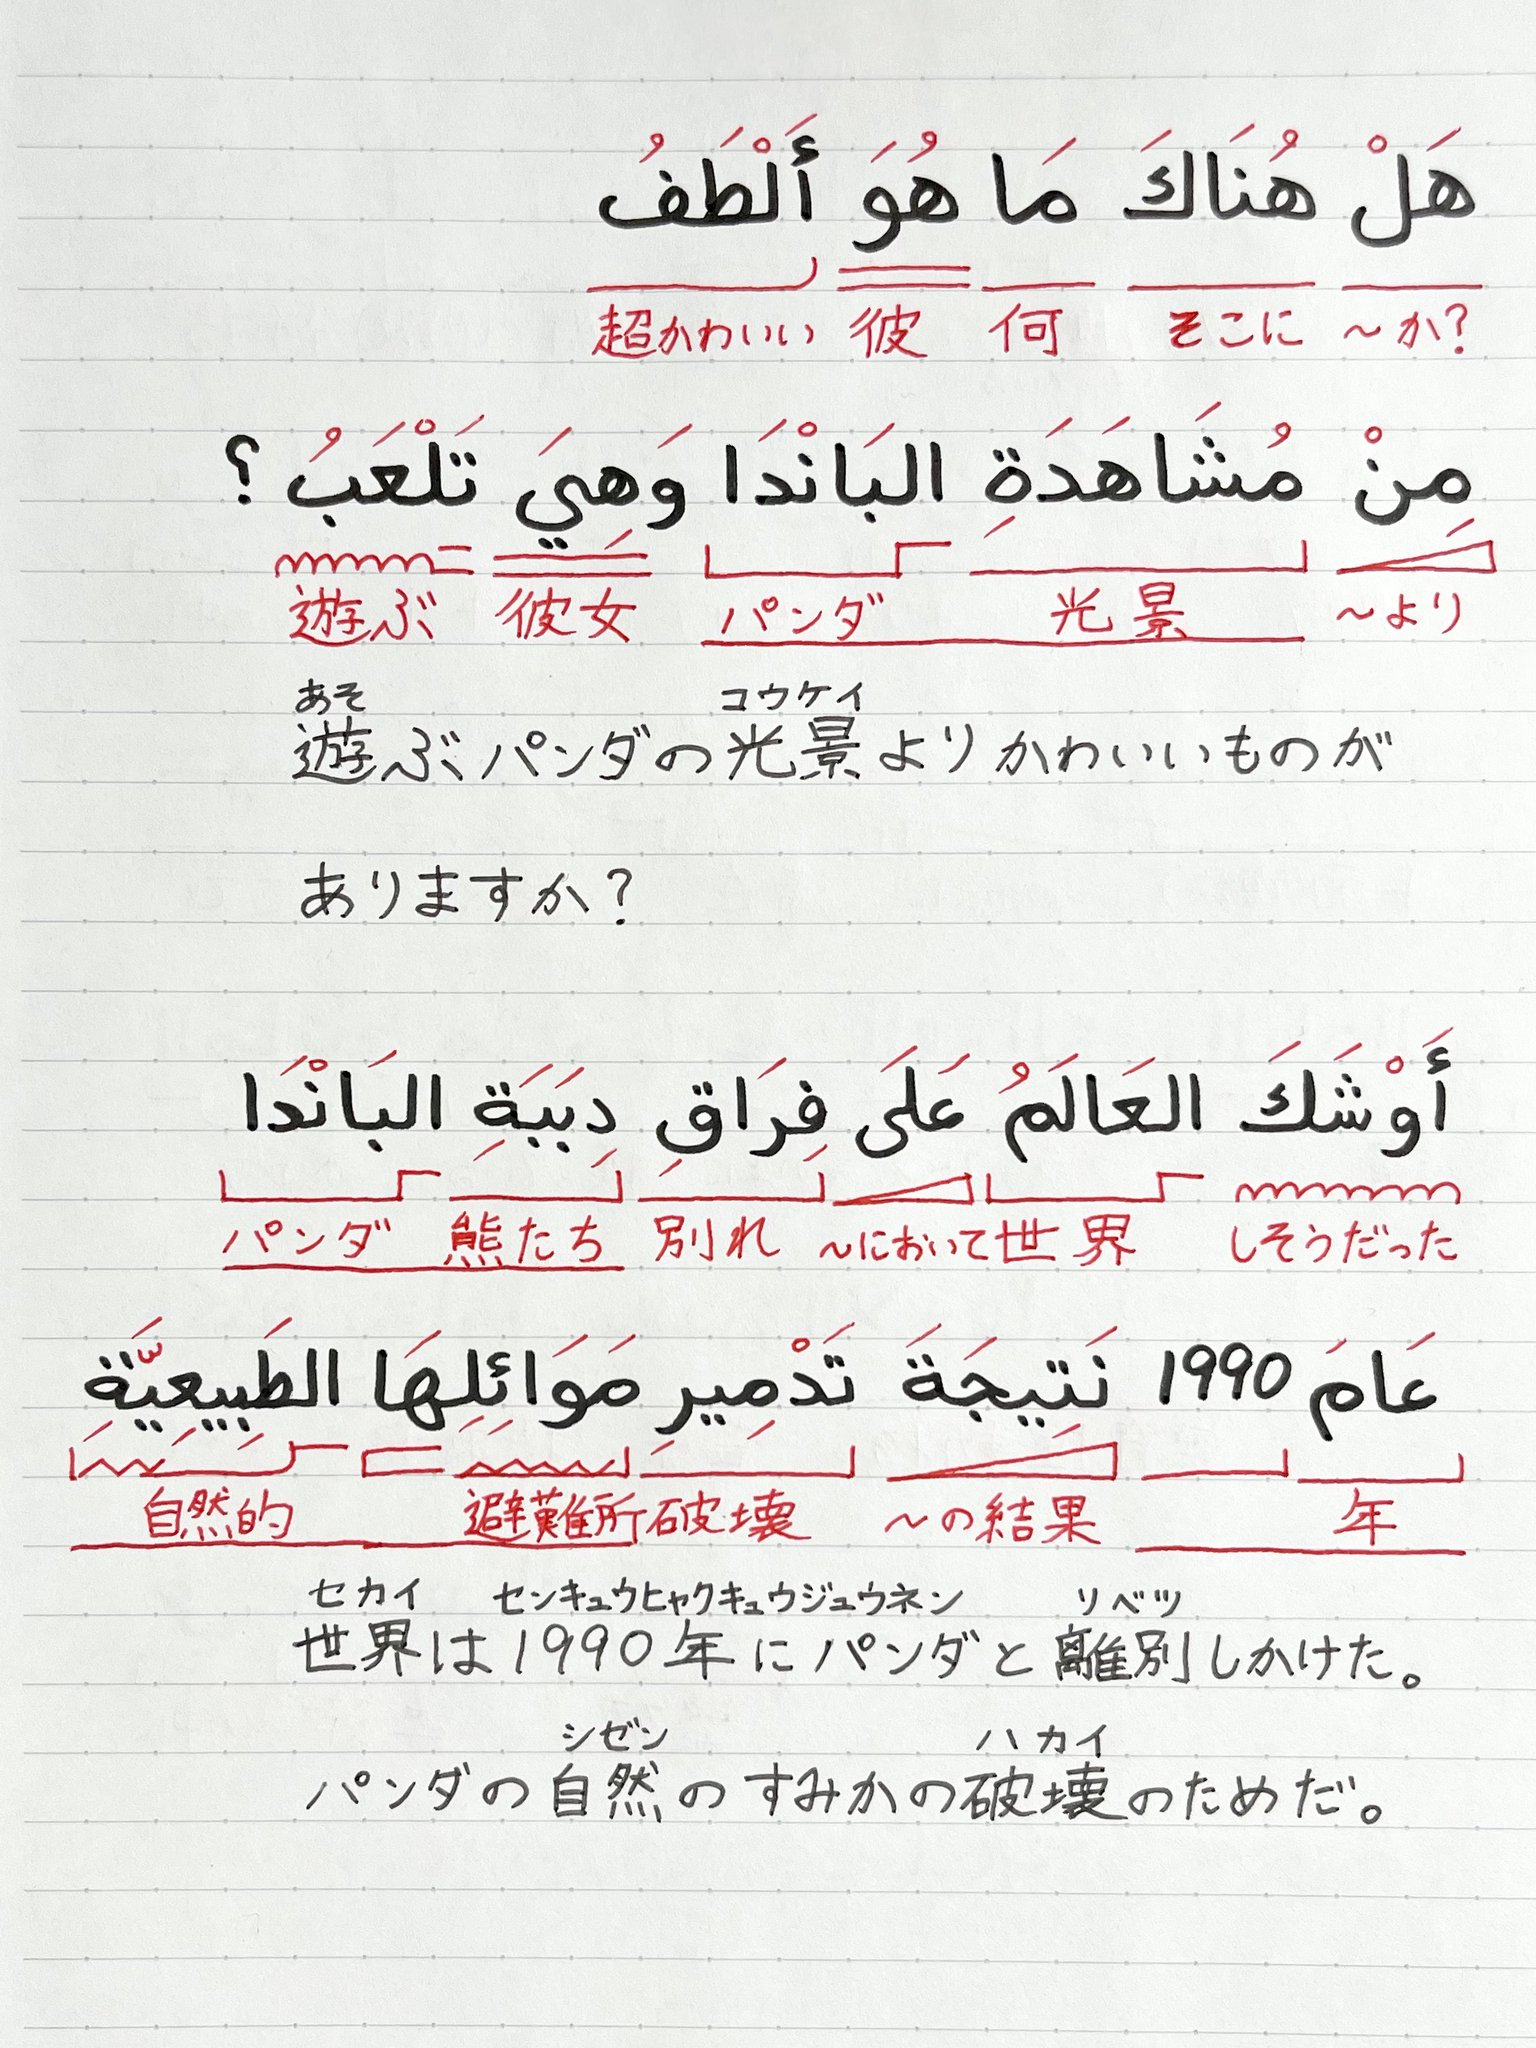 هَلْ هُنَاكَ مَا هُوَ أَلْطَفُ
~か? そこに 何 彼 超かわいい
مِنْ مُشَاهَدَةِ البَانْدَا وَهِيَ تَلْعَبُ ؟
~より 光景 パンダ 彼女 遊ぶ
あそ コウケイ
遊ぶパンダの光景よりかわいいものが
ありますか?
أَوْشَكَ العَالَمُ عَلَى فِرَاقِ دِبَبَةِ البَانْدَا
しそうだった 世界 ~において 別れ 熊たち パンダ
عَامَ 1990 نَتِيجَةَ تَدْمِيرِ مَوَائِلِهَا الطَبِيعِيَّةِ
年 ~の結果 破壊 避難所 自然的
セカイ センキュウヒャクキュウジュウネン リベツ
世界は1990年にパンダと離別しかけた。
シゼン ハカイ
パンダの自然のすみかの破壊のためだ。